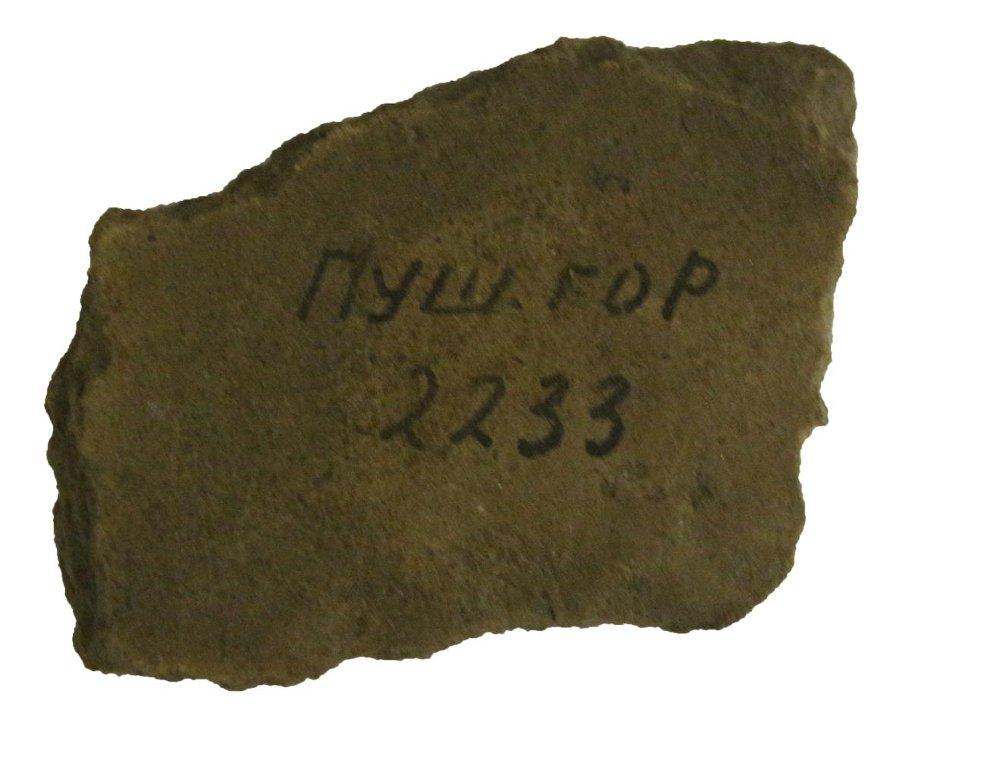 ПУШ. ГОР
2233